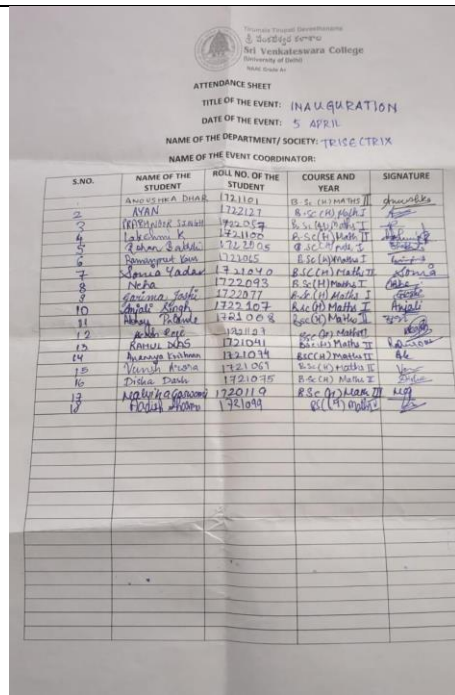 Tirumala Tirupati Devasthanams
శ్రీ వేంకటేశ్వర కళాశాల
Sri Venkateswara College
University of Delhi
NAAC Grade A+
ATTENDANCE SHEET
TITLE OF THE EVENT: INAUGURATION
DATE OF THE EVENT: 5 APRIL
NAME OF THE DEPARTMENT/ SOCIETY: TRISECTRIX
NAME OF THE EVENT COORDINATOR:
S.NO. NAME OF THE STUDENT ROLL NO. OF THE STUDENT COURSE AND YEAR SIGNATURE
ANOUSHKA DHAR 1721101 B.Sc (H) MATHS II Anoushka
2 AYAN 1722127 B.Sc (H) Maths I
3 SINGH 1722057 B.Sc (H) Maths I
4 Lakshmi K 1721100 B.Sc (H) Math II
5 1722005 B.Sc (H) Math I
6 Kaur B.Sc (H) Maths I
7 Sonia Yadav 1721040 BSC (H) Maths II Sonia
8 Neha 1722093 B.Sc (H) Maths I
9 Garima Joshi 1722077 B.Sc (H) Maths I
10 Anjali Singh 1722107 B.Sc (H) Maths I Anjali
11 1721008 B.Sc (H) Maths II
12
13 RAHUL DAS 1721041 B.Sc (H) Maths II
14 Ananaya Krishnan 1721094 BSC (H) Maths II
15 Vansh Arora 1721069 B.Sc (H) Maths II
16 Disha Dash 1721075 B.Sc (H) Maths II
17 Goswami 1720119 B.Sc (H) Maths III
18 1721099 BSc (H) Maths II